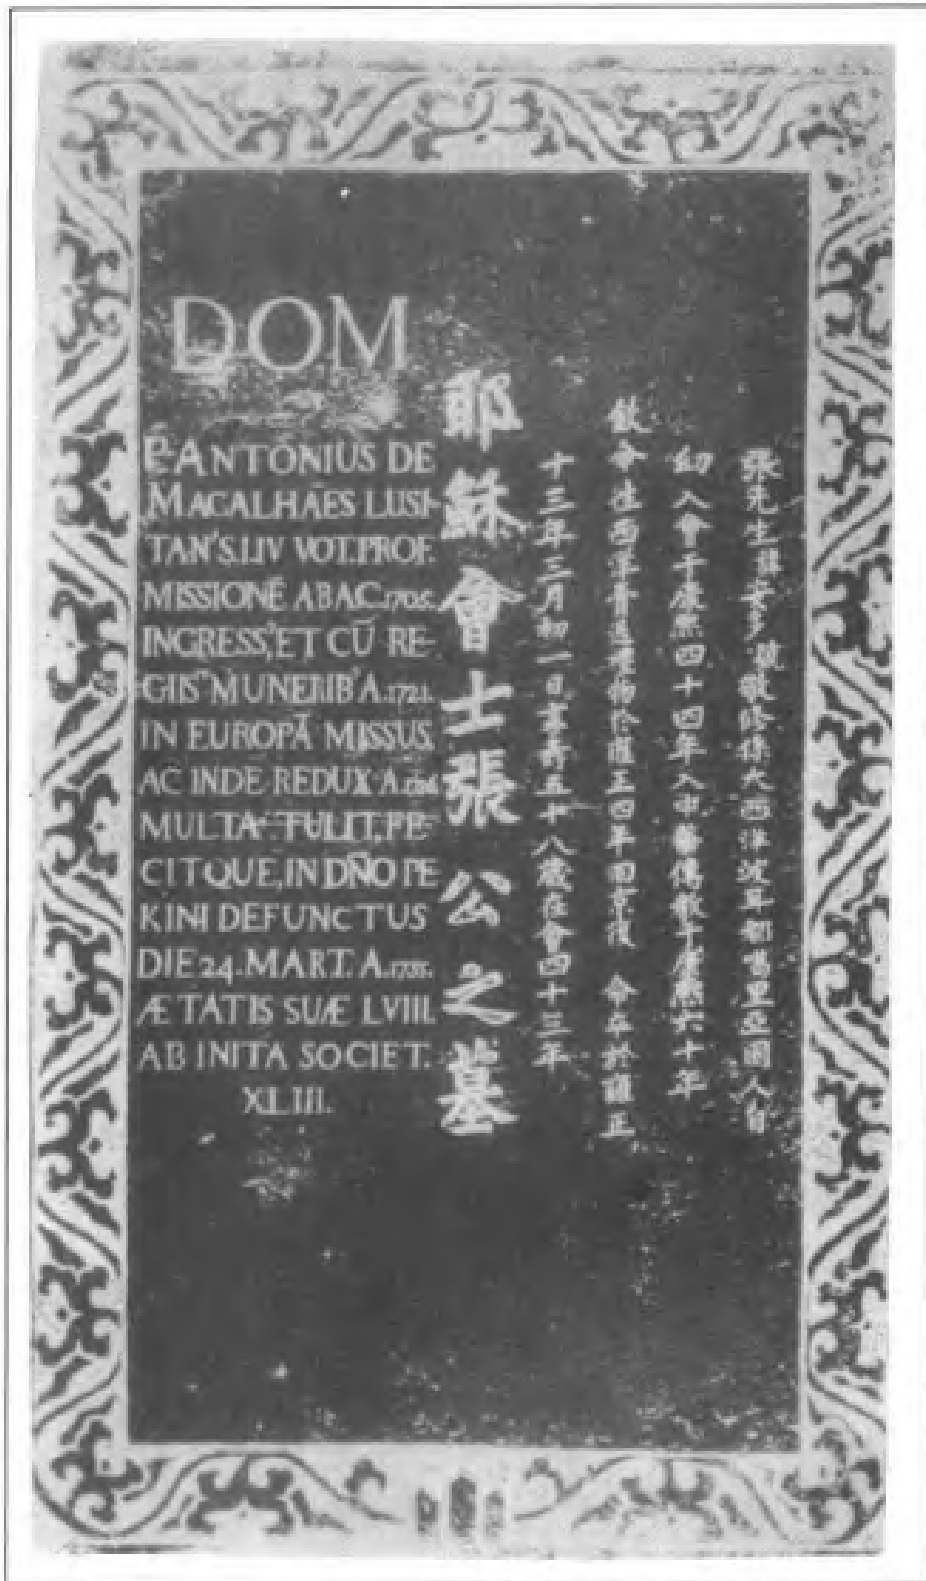 DOM
P. ANTONIUS DE
MAGALHAES LUSI-
TAN'S. IIV VOT. PROF.
MISSIONĒ AB AC. 1705.
INGRESS', ET CŪ RE-
GIIS MUNERIB' A. 1721.
IN EUROPĀ MISSUS,
AC INDE REDUX A.
MULTA TULIT, FE-
CITQUE, IN DÑO PE
KINI DEFUNCTUS
DIE 24. MART. A. 1735.
ÆTATIS SUÆ LVIII.
AB INITA SOCIET.
XLIII.
耶穌會士張公之墓
張先生諱安多號敬修係大西洋波耳都噶里亞國人自
幼入會于康熙四十四年入中華傳教于康熙六十年
欽命往西洋齎送禮物於雍正四年回京復 命卒於雍正
十三年三月初一日享壽五十八歲在會四十三年